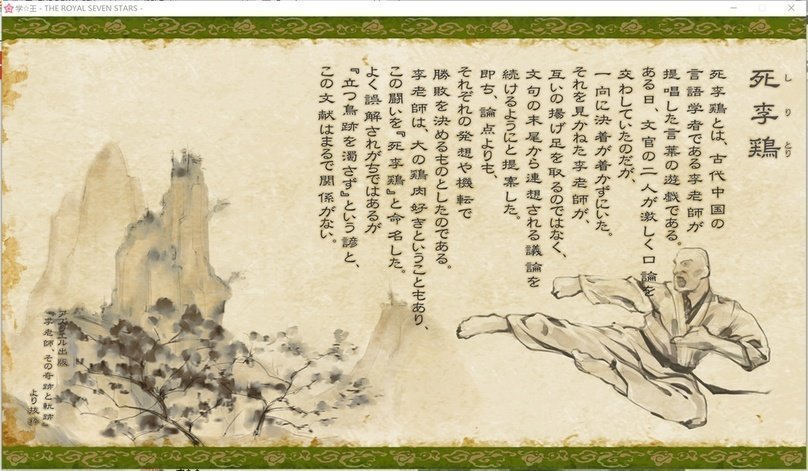 学☆王 - THE ROYAL SEVEN STARS -
死李鶏
しりとり
死李鶏とは、古代中国の
言語学者である李老師が
提唱した言葉の遊戯である。
ある日、文官の二人が激しく口論を
交わしていたのだが、
一向に決着が着かずにいた。
それを見かねた李老師が、
互いの揚げ足を取るのではなく、
文句の末尾から連想される議論を
続けるようにと提案した。
即ち、論点よりも、
それぞれの発想や機転で
勝敗を決めるものとしたのである。
李老師は、大の鶏肉好きということもあり、
この闘いを『死李鶏』と命名した。
よく誤解されがちではあるが
『立つ鳥跡を濁さず』という諺と、
この文献はまるで関係がない。
出版
『李老師、その奇跡と軌跡』
より抜粋